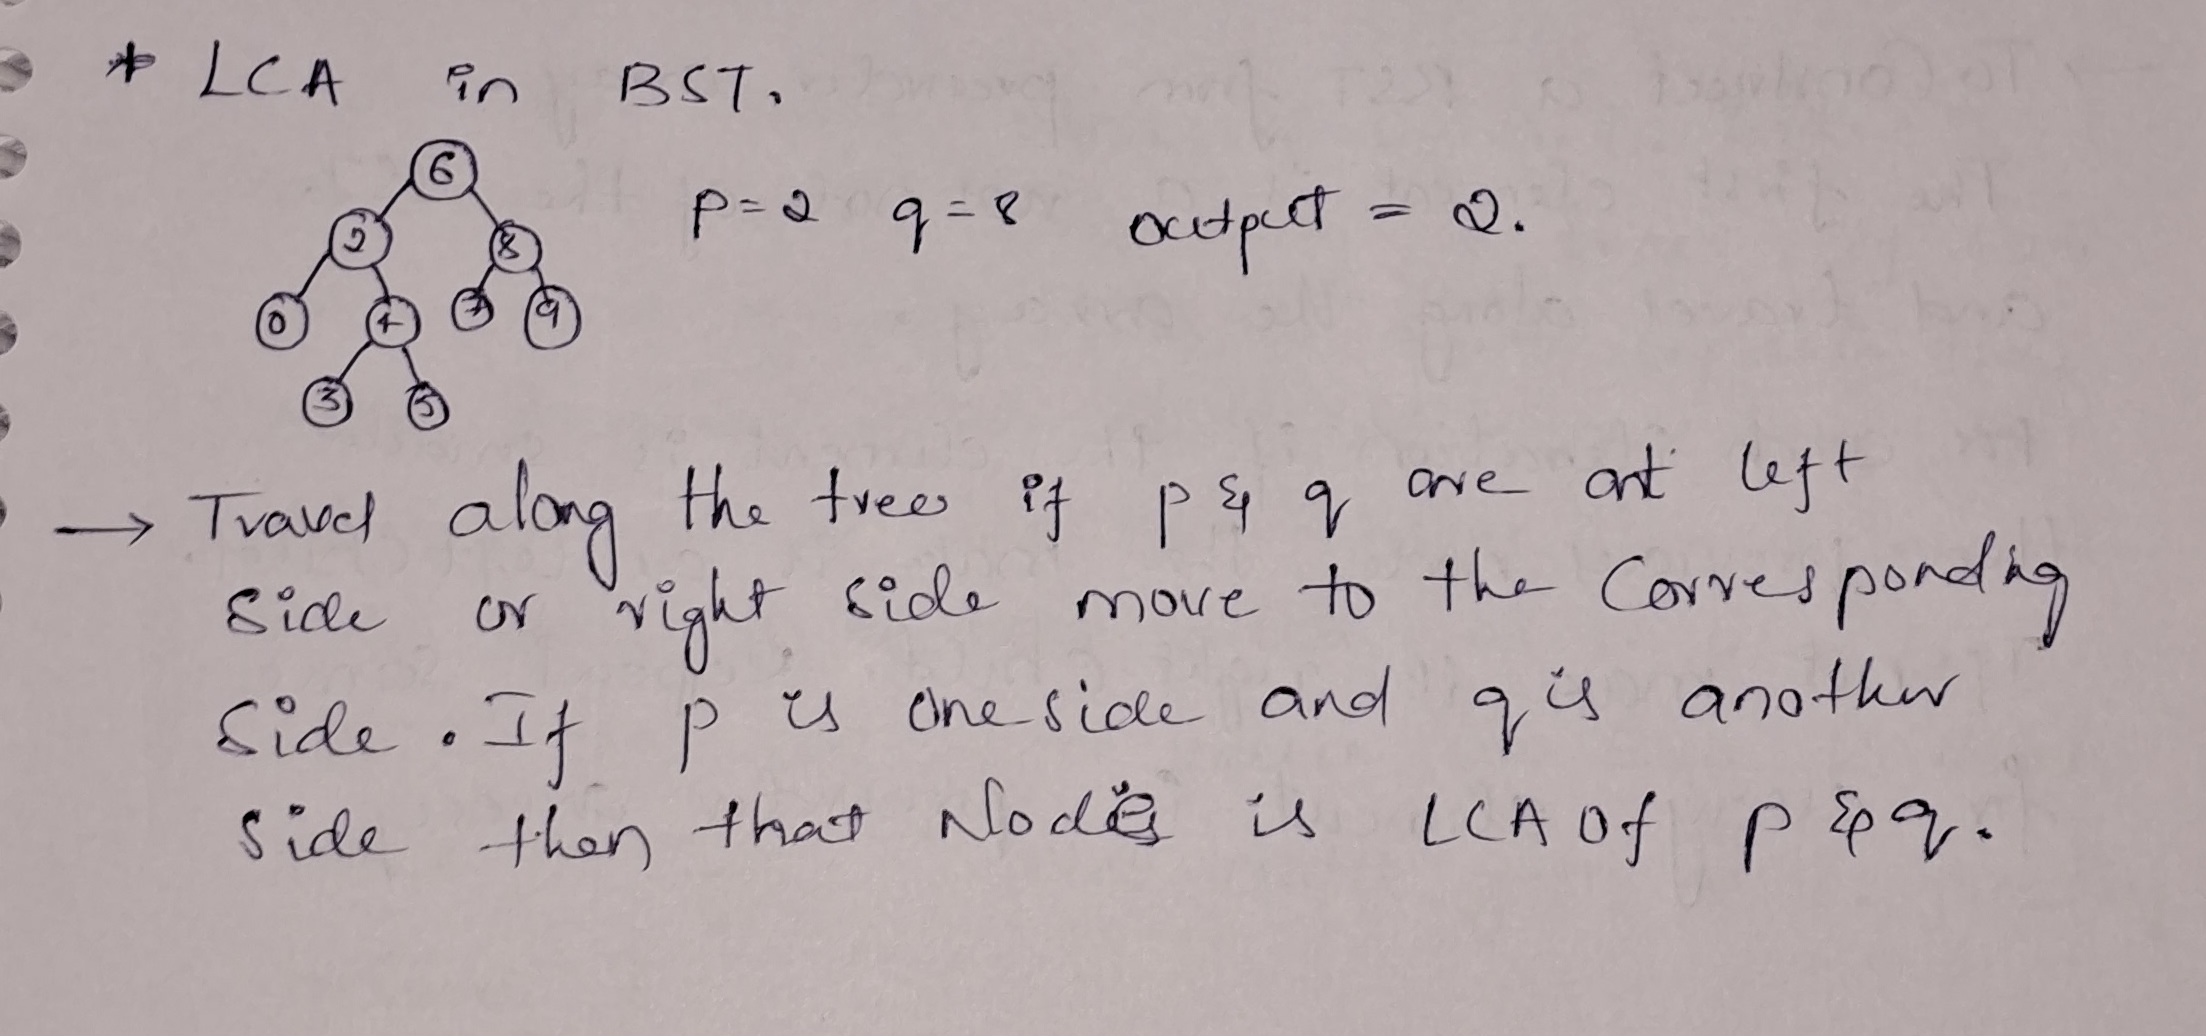 * LCA in BST.
6
p=2 q=8 output = 2.
2 8
0 4 7 9
3 5
→ Travel along the trees if p & q are at left
side or right side move to the Corresponding
side. If p is one side and q is another
side then that Node is LCA of p & q.